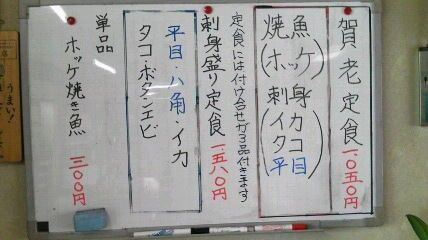 賀老定食 一、〇五〇円
焼魚(ホッケ)
刺身(イカ タコ 平目)
定食には付け合せが3品付きます
刺身盛り定食 一、五八〇円
平目・八角・イカ
タコ・ボタンエビ
単品
ホッケ焼き魚 三〇〇円
うまい!